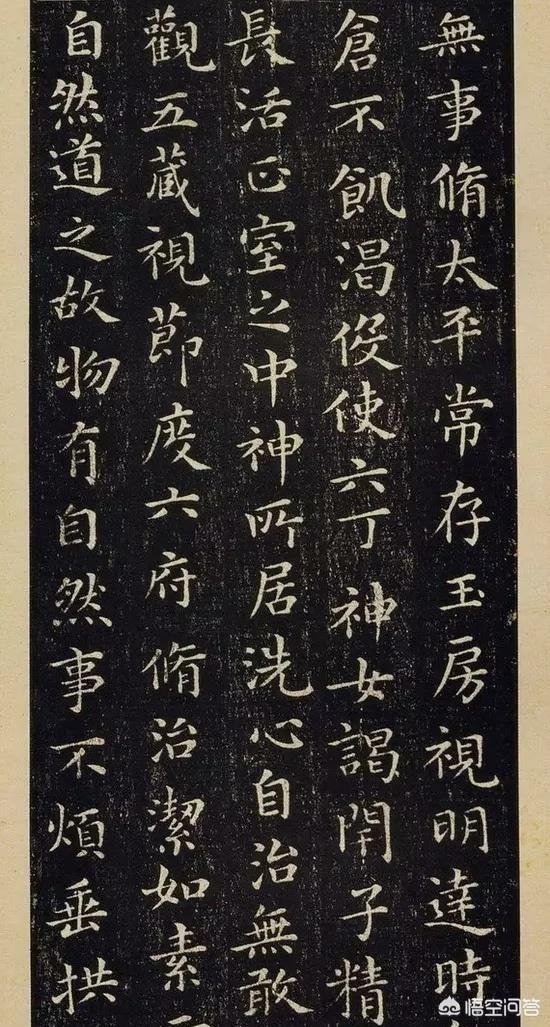 無事脩太平常存玉房視明達時
倉不飢渴役使六丁神女謁閇子精
長活正室之中神所居洗心自治無敢
觀五藏視節度六府脩治潔如素
自然道之故物有自然事不煩垂拱
悟空问答